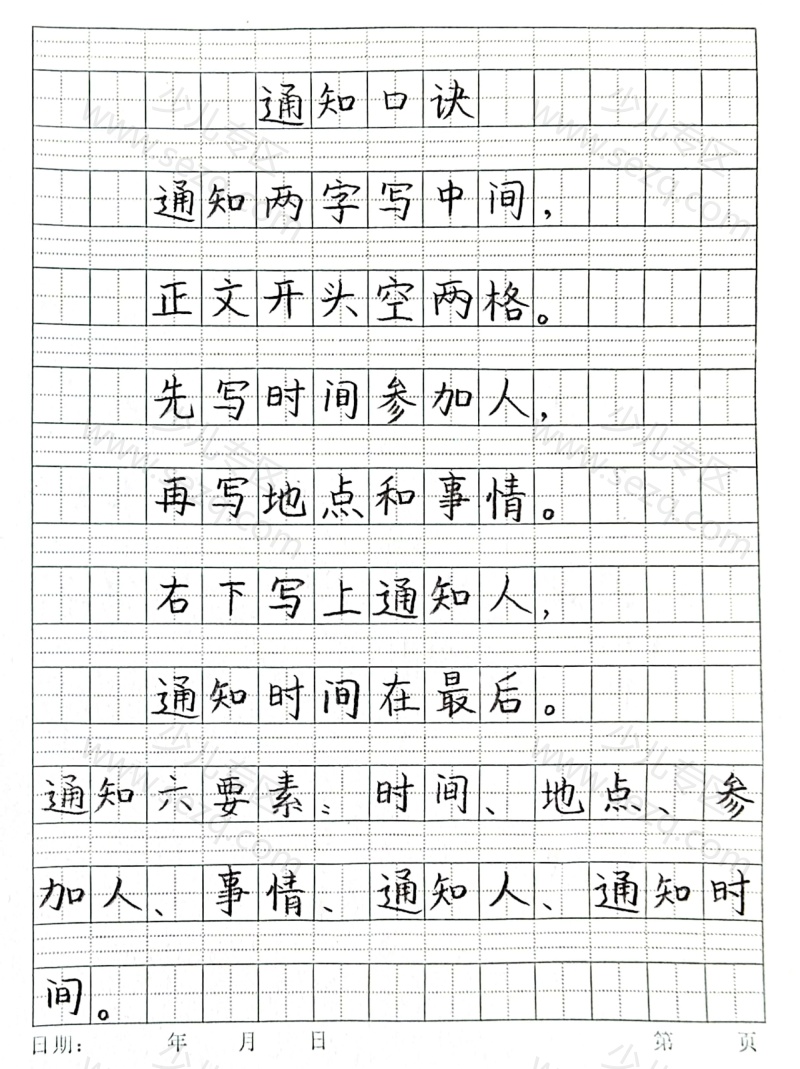 通知口诀
通知两字写中间，
正文开头空两格。
先写时间参加人，
再写地点和事情。
右下写上通知人，
通知时间在最后。
通知六要素：时间、地点、参
加人、事情、通知人、通知时
间。
日期： 年 月 日 第 页
少儿专区
www.sezq.com